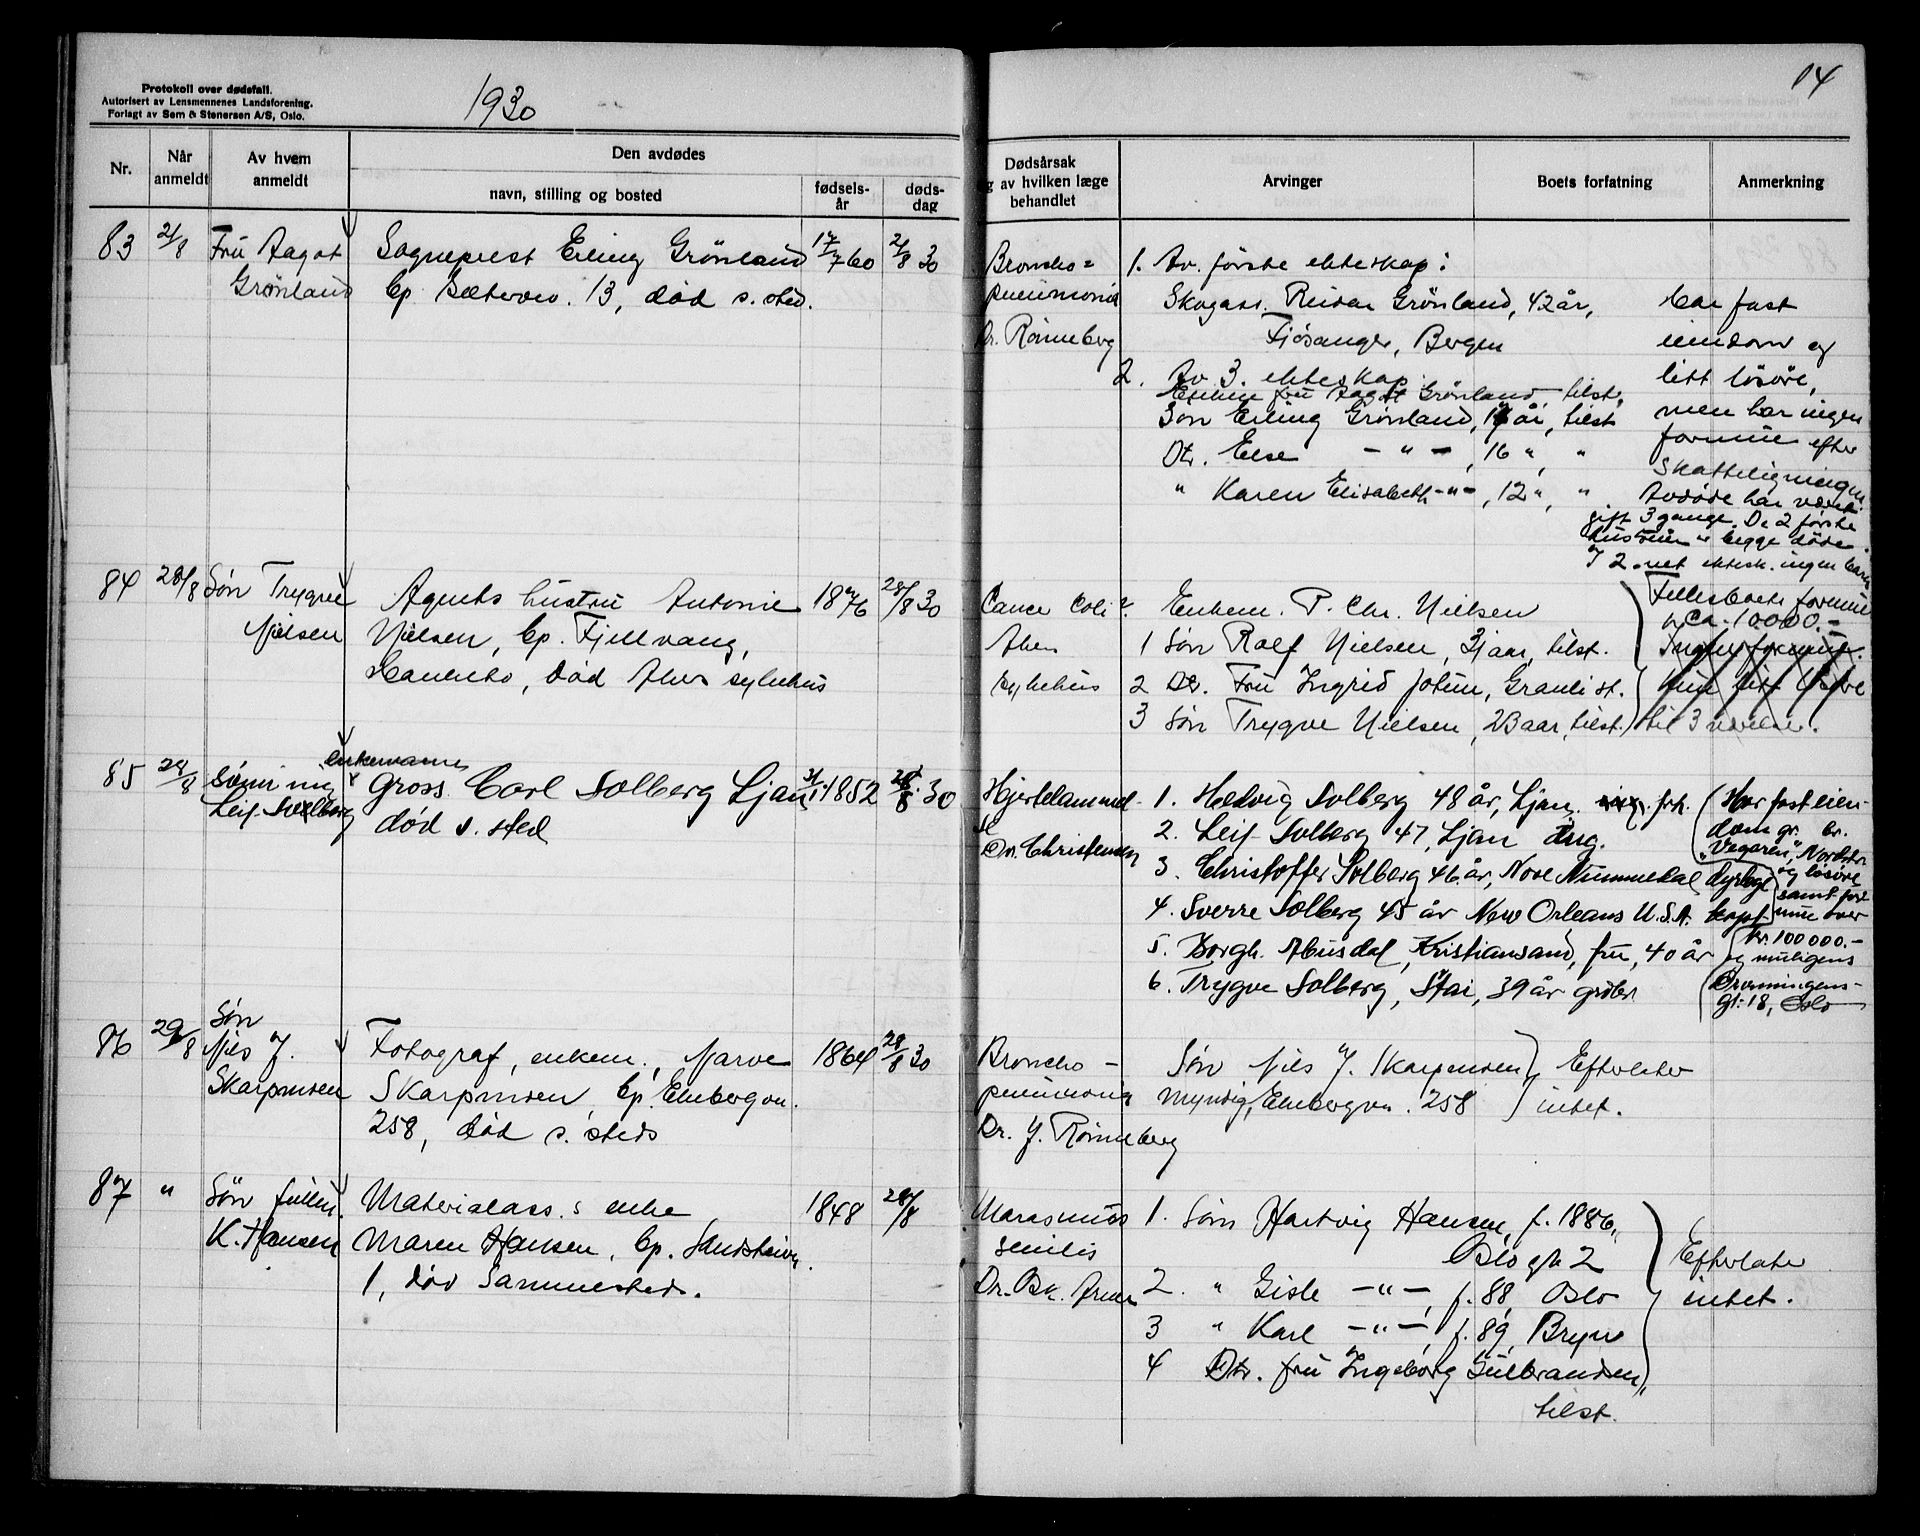 Protokoll over dødsfall.
Autorisert av Lensmennenes Landsforening.
Forlagt av Sem & Stenersen A/S, Oslo.
1930
14
Nr.
Når anmeldt
Av hvem anmeldt
Den avdødes
navn, stilling og bosted
fødsels-år
døds-dag
Dødsårsak
og av hvilken læge
behandlet
Arvinger
Boets forfatning
Anmerkning
83 21/8 Fru Aagot Grønland
Sogneprest Erling Grønland
bp Sæterv. 13, død s. sted.
17/7 60 21/8 30
Broncho=
pneumonia
Dr. Rønneberg
1. Av første ekteskap:
Skogass. Reidar Grønland, 42 år,
Fjøsanger, Bergen
2. Av 3. ekteskap
Enken fru Aagot Grønland, tilst.
Søn Erling Grønland, 17 år, tilst
Dtr. Else -"- , 16 ", "
" Karen Elisabeth -"- , 12 ", "
har fast
eiendom og
litt løsøre,
men har ingen
formue efter
Skatteligningen
Avdøde har været
gift 3 gange. De 2 første
hustruer er begge døde.
I 2. ektesk. ingen barn
84 28/8 Søn Trygve
Nielsen
Agents hustru Antonie
Nielsen, bp. Fjellvang,
død Aker sykehus
1876 28/8 30
Cancer Coli
Aker
sykehus
Enkem. P. Chr. Nielsen
1 Søn Rolf Nielsen, 31 aar, tilst.
2 Dtr. Fru Ingrid Jotun, Granli st.
3 Søn Trygve Nielsen, 23 aar, tilst.
Fellesboets formue
er ca. 10000.-
Ingen formue.
Kun litt løsøre
85 28/8 Sønn ing
Leif Solberg
enkemann
Gross. Carl Solberg Ljan
død s. sted
1852 28/8 30
Hjertelammelse
Dr. Christensen
1. Hedvig Solberg 48 år, Ljan, frk.
2. Leif Solberg 47, Ljan ing.
3. Christoffer Solberg 46 år, Nore Nummedal dyrlæge
4. Sverre Solberg 45 år New Orleans U.S.A. kapt
5. Borgh. Abusdal, Kristiansand, fru, 40 år
6. Trygve Solberg, Stai, 39 år grdbr
Har fast eien-
dom gr. br.
"Vegaren", Nordstr
og løsøre
samt for-
mue over
kr. 100000.-
og muligens
Dronningens-
gt. 18, Oslo
86 29/8 Søn
Nils J.
Skarpmoen
Fotograf, enkem., Narve
Skarpmoen, bp. Ekebergvn.
258, død s. steds
1864 28/8 30
Broncho-
pneumonia
Dr. J. Rønneberg
Søn Nils J. Skarpmoen
myndig, Ekebergvn. 258
Efterlater
intet.
87 " Søn
K. Hansen
Materialass.s enke
Maren Hansen, bp.
1, død Sammesteds.
1848 28/8
Marasmus
senilis
Dr. Osk.
1. Søn Hartvig Hansen, f. 1886,
Oslo gt. 2
2. " Gisle -"-, f. 88, Oslo
3 " Karl -"-, f. 89, Bryn
4 Dtr. fru Ingeborg Gulbrandsen,
tilst.
Efterlater
intet.